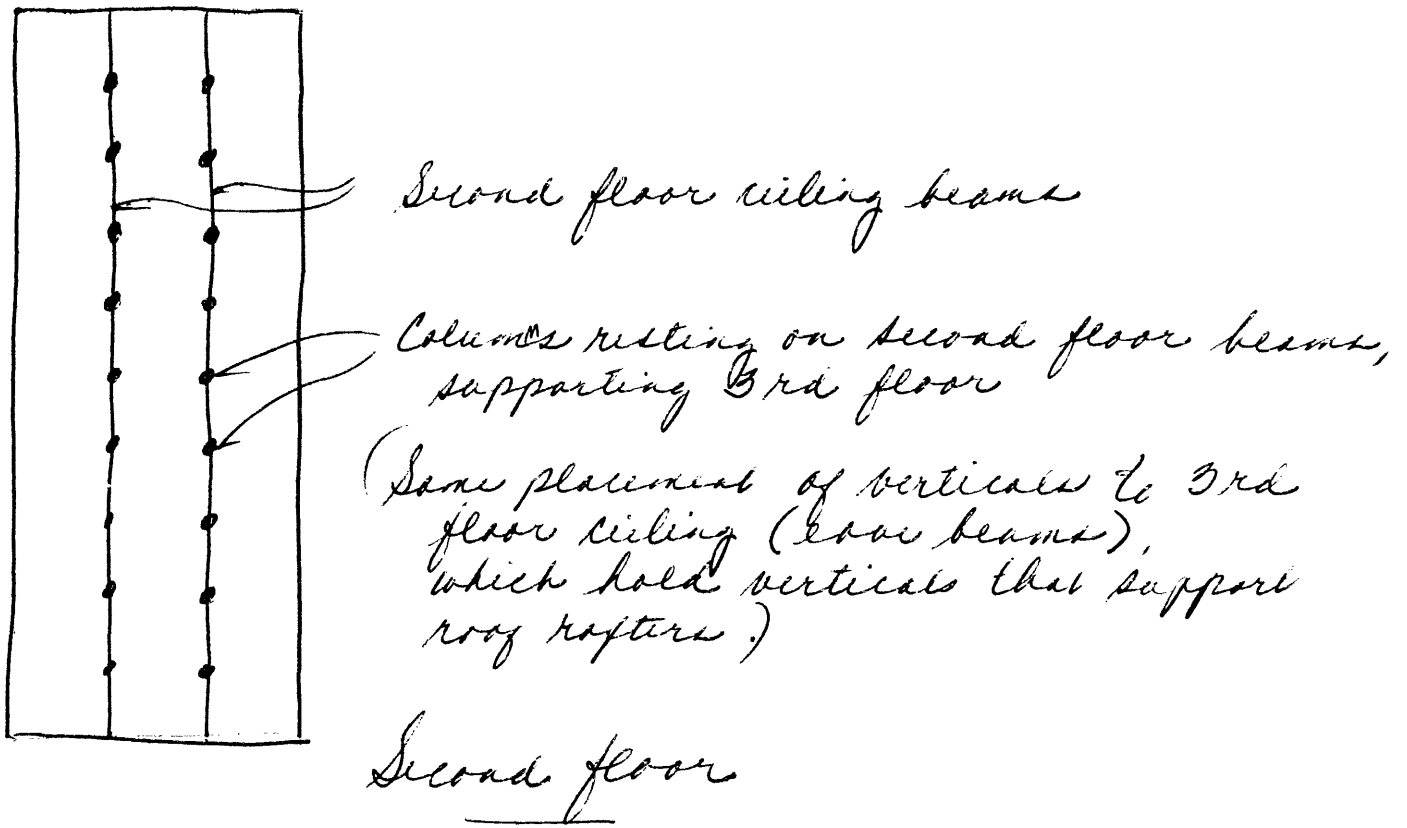 Second floor ceiling beams
Columns resting on second floor beams,
supporting 3rd floor
(Same placement of verticals to 3rd
floor ceiling (eave beams),
which hold verticals that support
roof rafters.)
Second floor